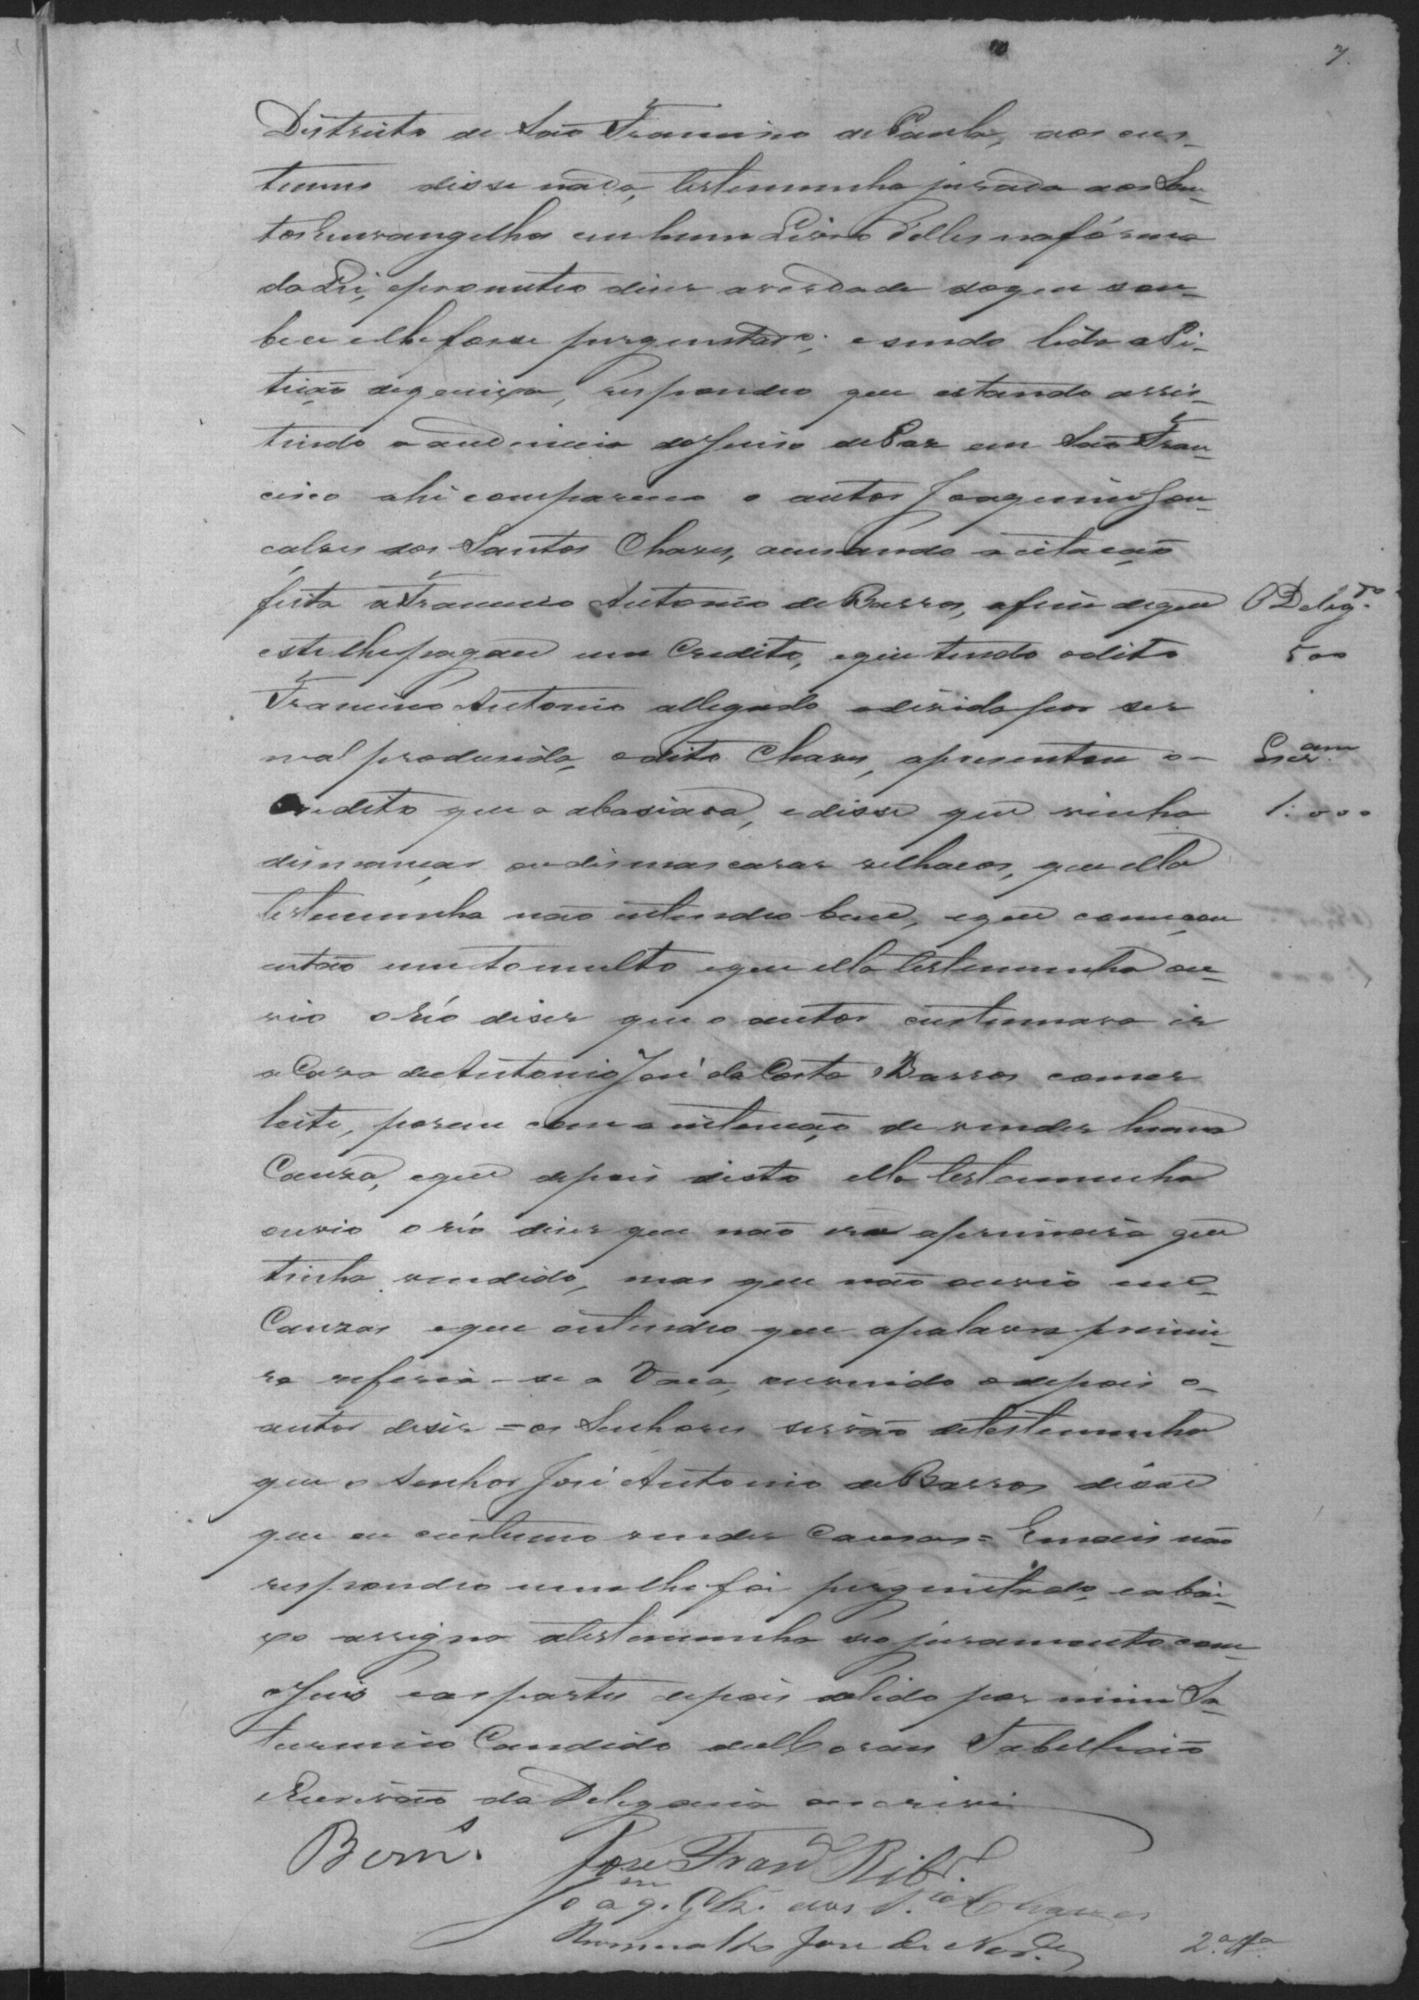 7.
Destricto de São Francisco de Paula, aos cus-
tumes disse nada, testemunha jurada aos San-
tos Euvangelhos em hum Livro d'elles na fórma
da Lei, e prometteo diser a verdade do que sou-
besse e lhe fosse perguntado; e sendo lida a Pi-
tição de queixa, respondeo que estando assis-
tindo a audiencia do Juiso de Paz em São Fran-
cisco ahi compareceo o autor Joaquim Gon-
çalves dos Santos Chaves, acusando a citação
feita a Francisco Antonio de Barros, afim de que
este lhe pagasse um Credito, e que tendo o dito
Francisco Antonio allegado a divida por ser
mal produsida, o dito Chaves, apresentou o
Credito que o abasiava, e disse que vinha
ou dismascarar velhacos, que ella
testemunha não intendeo bem, e que começou
então um tomulto e que ella testemunha ou-
vio o réo diser que o autor custumava ir
a Casa de Antonio José da Costa Barros comer
leite, porem com a intenção de vender huma
Cauza, e que depois disto ella testemunha
ouvio o réo diser que não era a primeira que
tinha vendido, mas que não ouvio em
Cauzas e que intendeo que a palavra primei-
ra referia-se a Vaca, ouvindo a depois o
autor diser = os Senhores serváo de testemunha
que o Senhor José Antonio de Barros disse
que eu custumo vender Causas = E mais não
respondeo nem lhe foi perguntado, e abai-
xo assigna a testemunha seo juramento com
o Juis e as partes depois de lido por mim Sa-
turnino Candido de Moraes Tabellião
e Escrivão da Delegacia o escrivi
O Deleg.do
500
Escr.am
1:000
Bem.s
José Fran.co Rib.ro
Joaq.m Glz. dos S.tos Chaves
Romualdo Jose de
2.a T.a